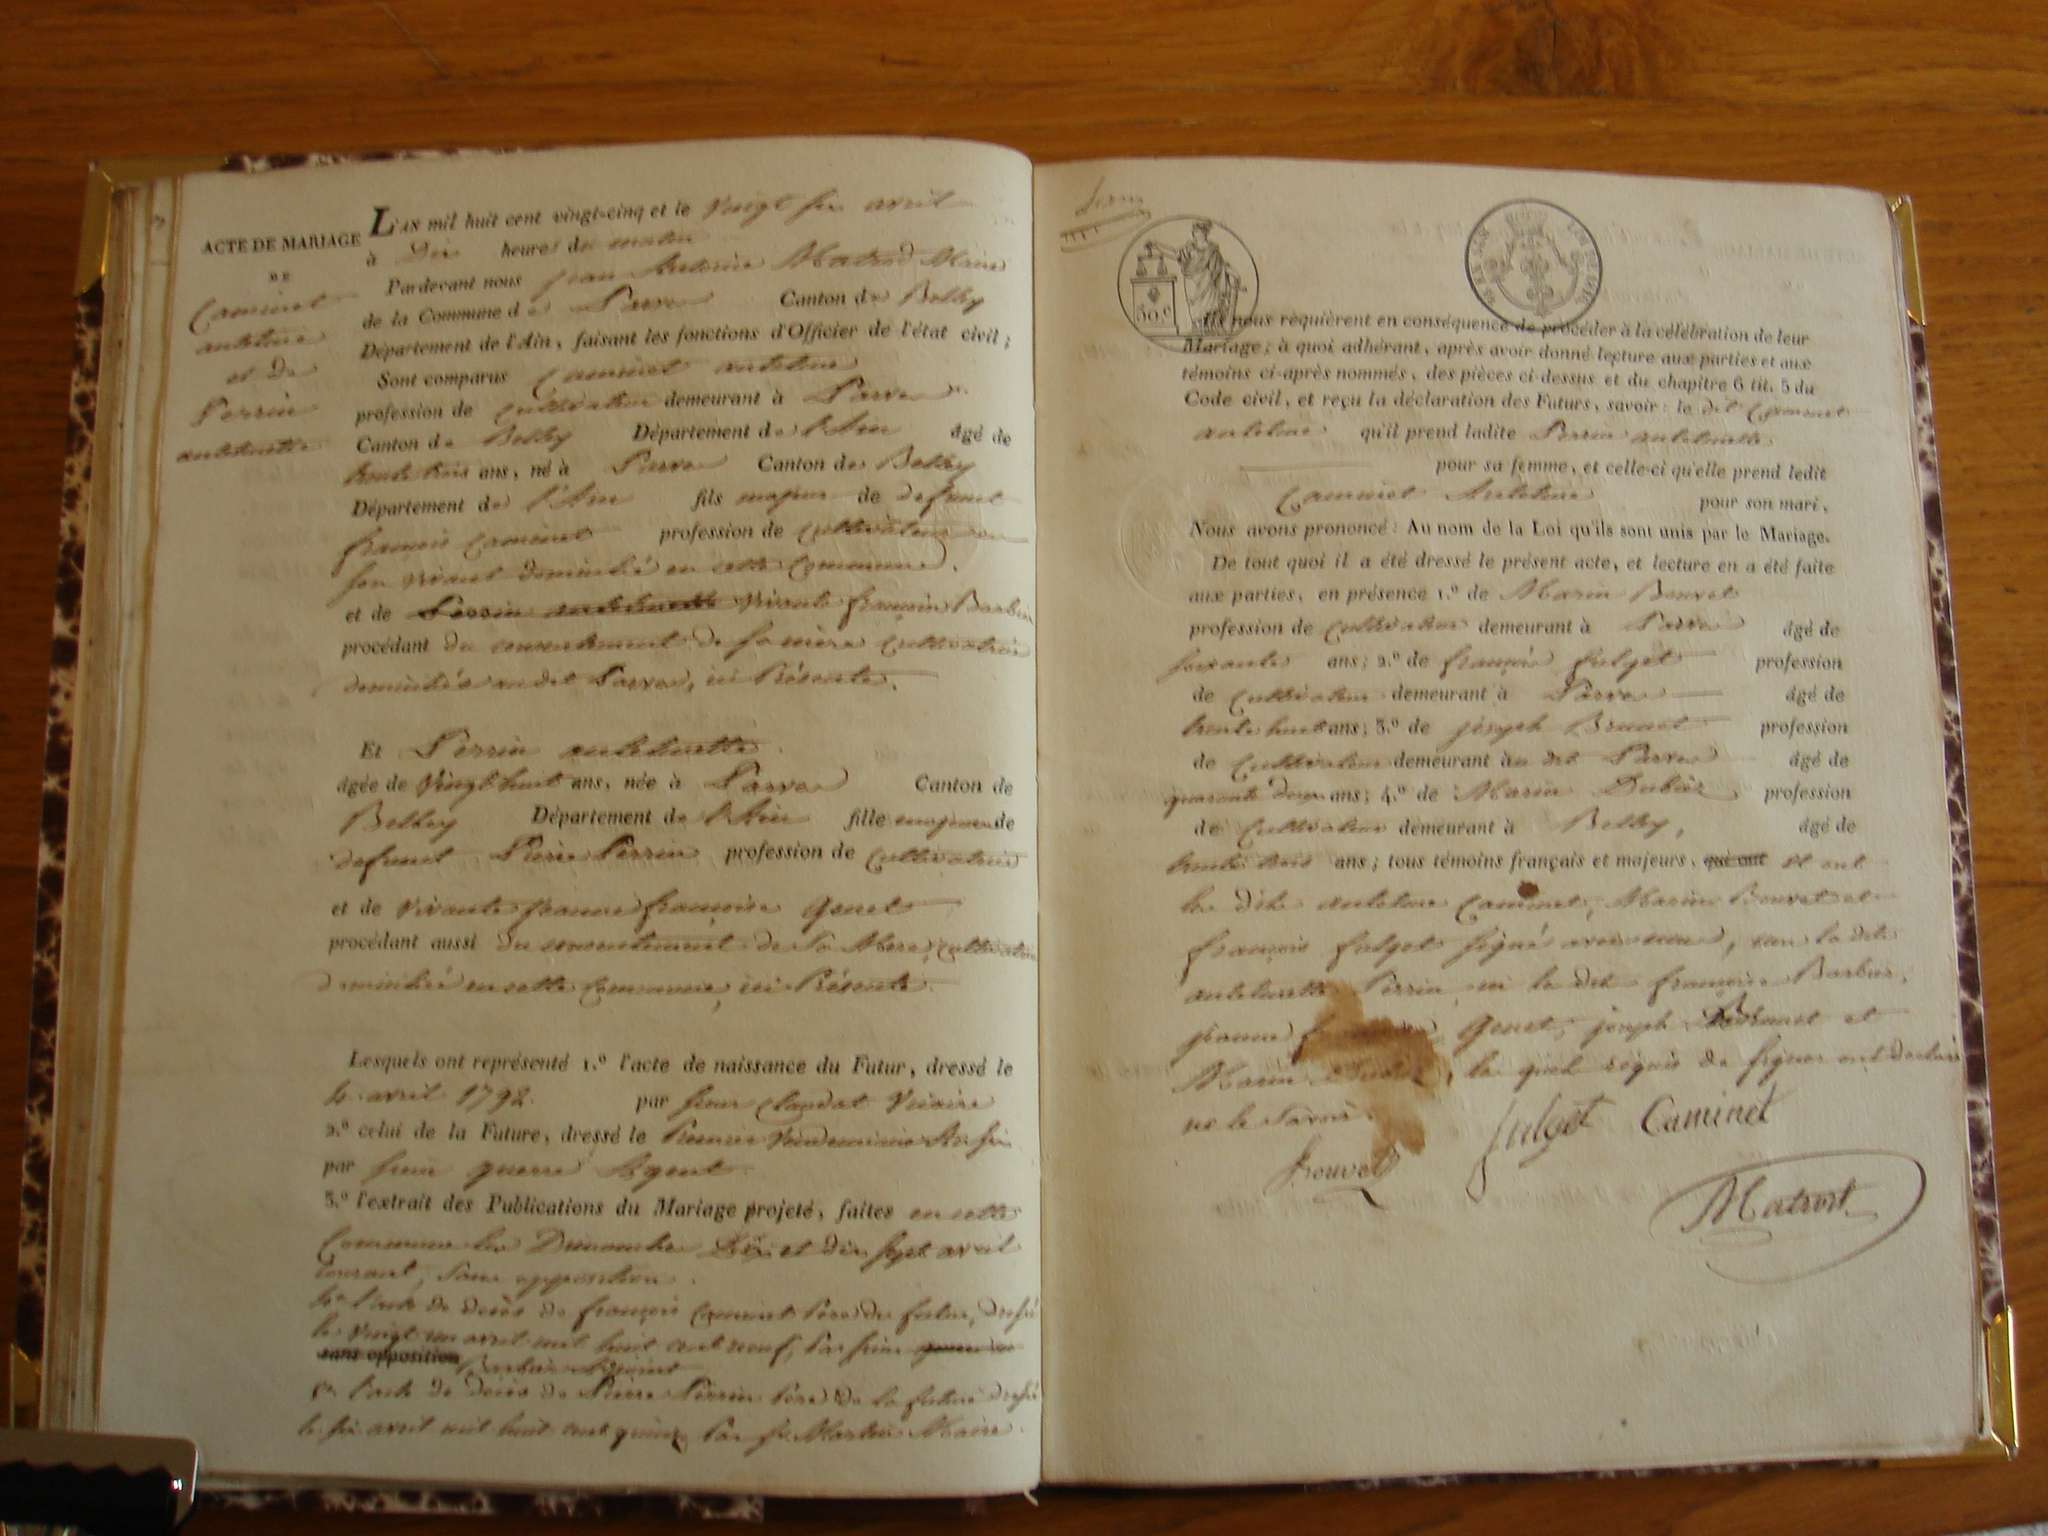 ACTE DE MARIAGE
DE
Caminet
anthelme
et de
Perrin
anthelmette
L'AN mil huit cent vingt-cinq et le Vingt six avril
à Dix heures du matin
Pardevant nous jean Antoine Matrod Maire
de la Commune de Parves Canton de Belley
Département de l'Ain, faisant les fonctions d'Officier de l'état civil;
Sont comparus Caminet anthelme
profession de Cultivateur demeurant à Parves
Canton de Belley Département de l'Ain âgé de
trente trois ans, né à Parves Canton de Belley
Département de l'Ain fils majeur de defunct
françois Caminet profession de Cultivateur en
son vivant domicilié en cette Commune.
et de Perrin anthelmette vivante françoise Barbier
procédant du consentement de sa mère Cultivatrice
domiciliée au dit Parves, ici Présente.
Et Perrin anthelmette
âgée de Vingt huit ans, née à Parves Canton de
Belley Département de l'Ain fille majeure de
defunct Pierre Perrin profession de Cultivateur
et de vivante jeanne françoise Genet
procédant aussi du consentement de Sa Mere, Cultivatrice
domicilié en cette Commune, ici Présente.
Lesquels ont représenté 1.º l'acte de naissance du Futur, dressé le
4 avril 1792 par sieur Claudat Vicaire
2.º celui de la Future, dressé le Premier Vendemiaire An six
par sieur guerre Agent
3.º l'extrait des Publications du Mariage projeté, faites en cette
Commune les Dimanches Dix et dix sept avril
courant, sans opposition.
4º l'acte de décès de françois Caminet Père du futur, dressé
le Vingt un avril mil huit cent neuf, Par sieur
sans opposition Barbier Adjoint
5º l'acte de décès de Pierre Perrin Père de la future dressé
le six avril mil huit cent quinze Par Sr Martin Maire.
50.c
Ils nous requièrent en conséquence de procéder à la célébration de leur
Mariage; à quoi adhérant, après avoir donné lecture aux parties et aux
témoins ci-après nommés, des pièces ci-dessus et du chapitre 6 tit. 5 du
Code civil, et reçu la déclaration des Futurs, savoir: le dit Caminet
anthelme qu'il prend ladite Perrin anthelmette
pour sa femme, et celle-ci qu'elle prend ledit
Caminet Anthelme pour son mari.
Nous avons prononcé: Au nom de la Loi qu'ils sont unis par le Mariage.
De tout quoi il a été dressé le présent acte, et lecture en a été faite
aux parties, en présence 1.º de Marin Bouvet
profession de Cultivateur demeurant à Parves âgé de
soixante ans; 2.º de françois fulget profession
de Cultivateur demeurant à Parves âgé de
trente huit ans; 3.º de joseph Brunet profession
de Cultivateur demeurant au dit Parves âgé de
quarante deux ans; 4.º de Marin Dubier profession
de Cultivateur demeurant à Belley, âgé de
trente trois ans; tous témoins français et majeurs, qui ont et ont
les dits anthelme Caminet, Marin Bouvet et
françois fulget signé avec nous, non la dite
anthelmette Perrin, ni la dite françoise Barbier,
jeanne Genet, joseph Brunet et
Marin, les quels requis de signer ont declaré
ne le savoir.
Bouvet fulget Caminet
Matrod